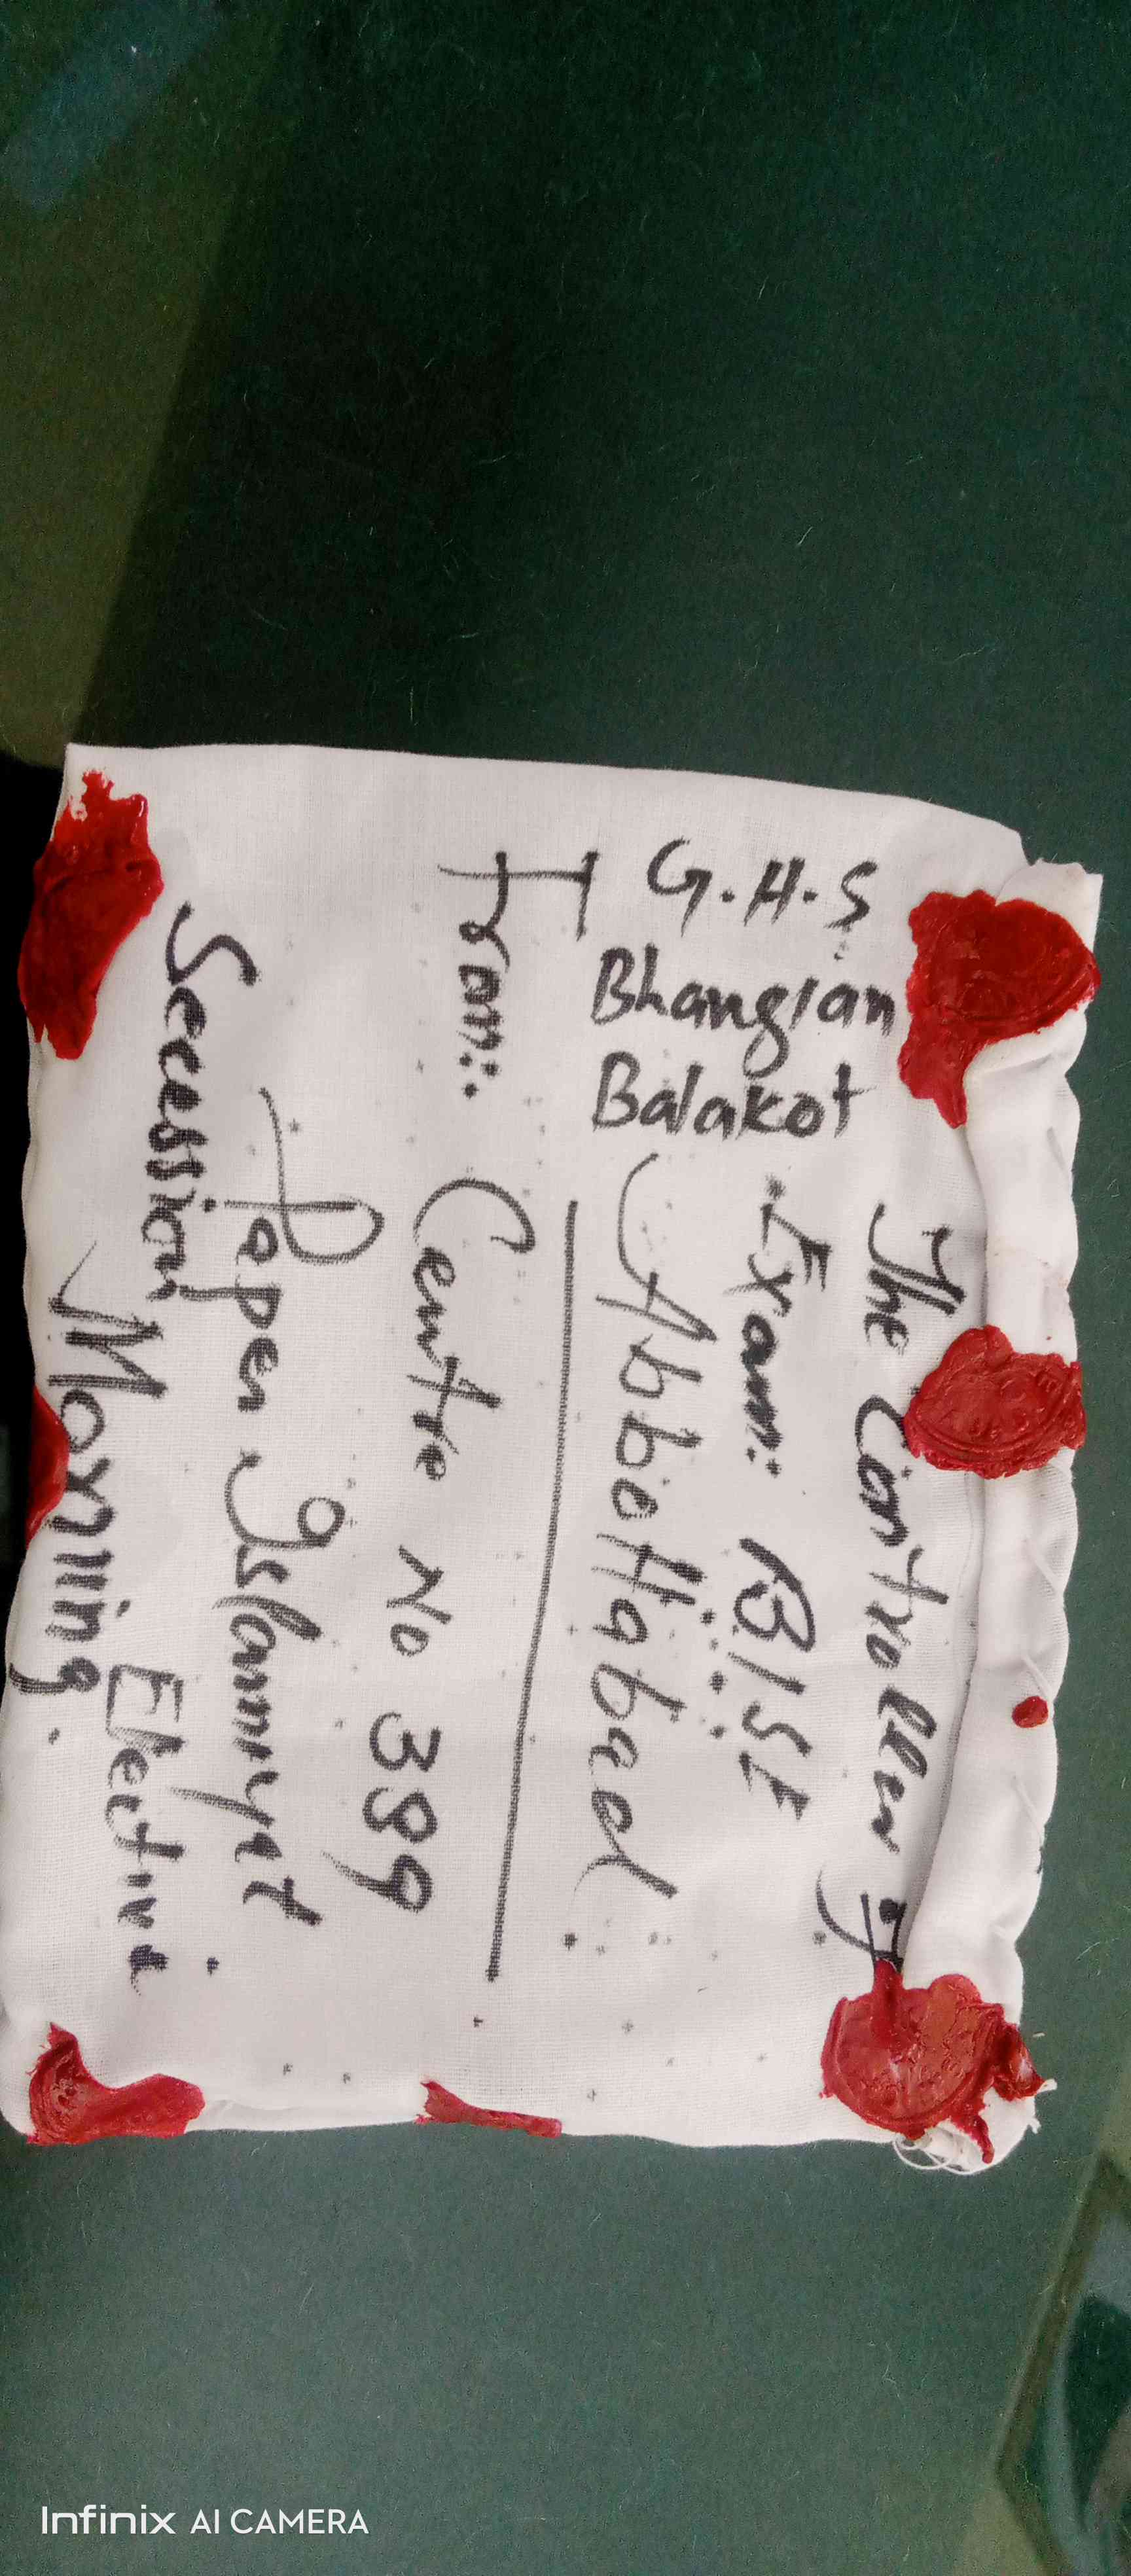 The Controller of
Exam: BISE
Abbottabad.
G.H.S
Bhangian
Balakot
From:
Centre No 389
Paper Islamiyat
Elective
Secession
Morning.
Infinix AI CAMERA